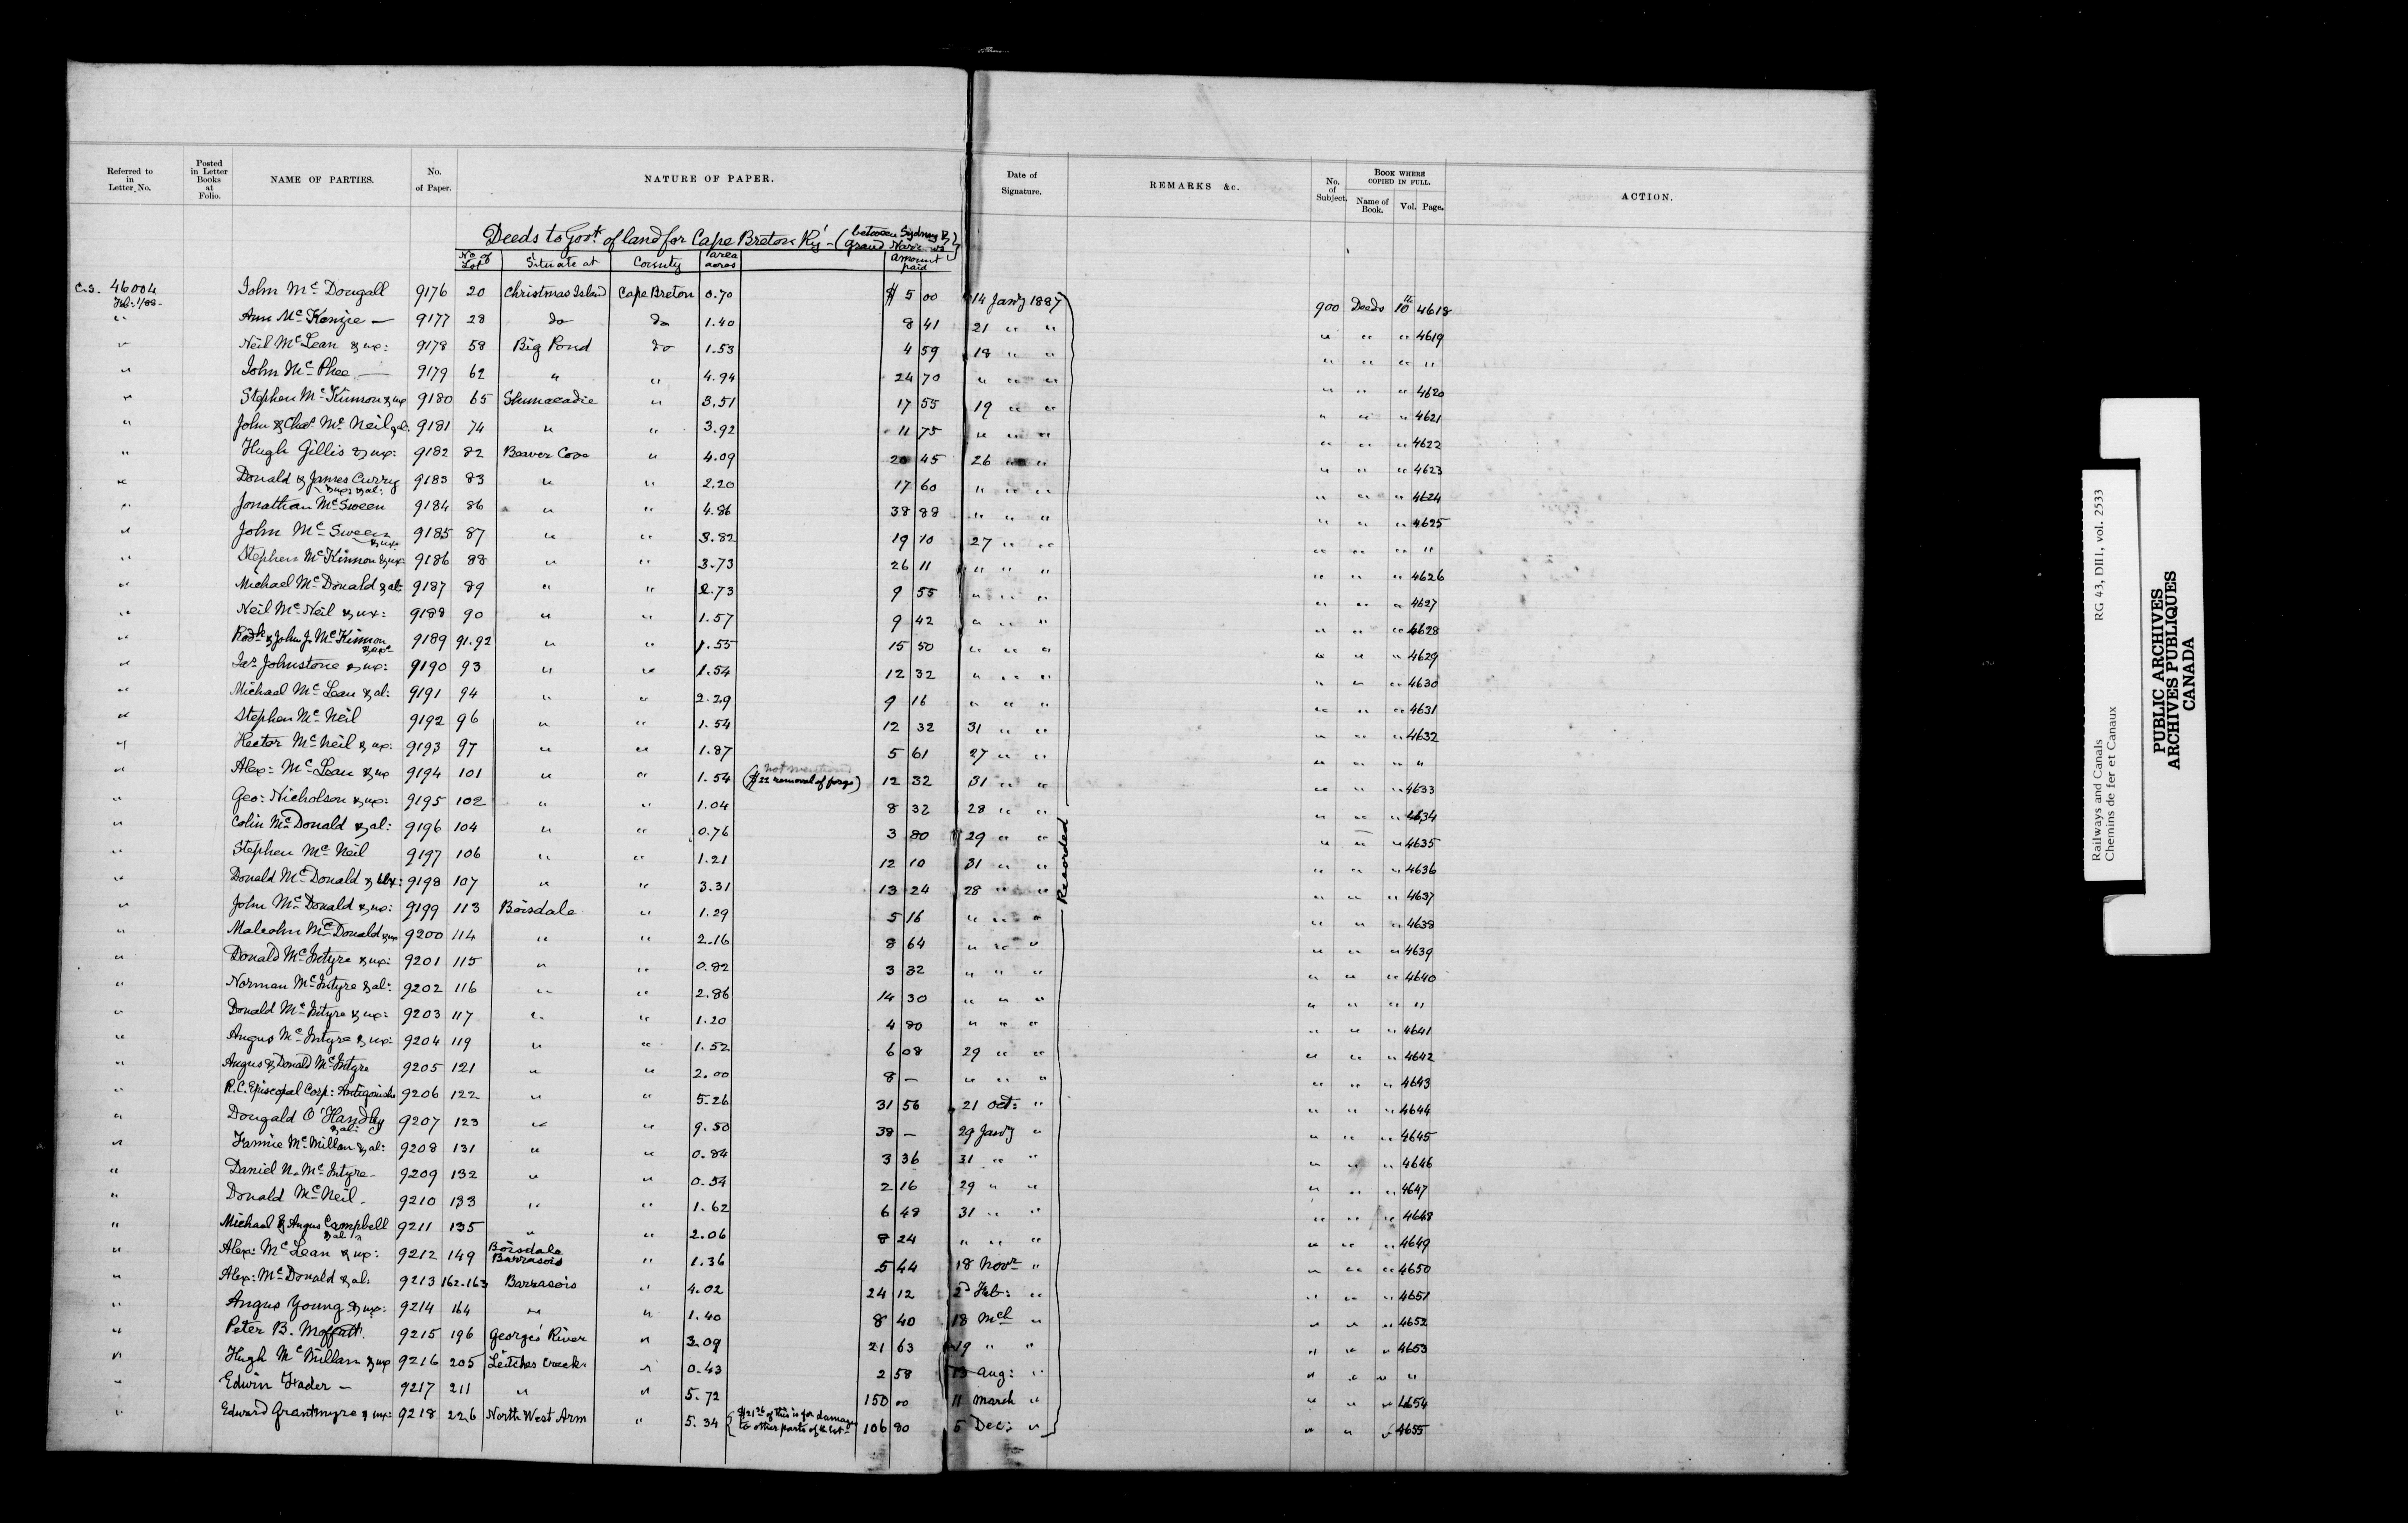 Referred to in Letter No. | Posted in Letter Books at Folio. | NAME OF PARTIES. | No. of Paper. | NATURE OF PAPER. | Date of Signature. | REMARKS &c. | No. of Subject. | BOOK WHERE COPIED IN FULL. Name of Book. Vol. Page. | ACTION.
Deeds to Govt. of land for Cape Breton Ry - (between Sydney & Grand Narrows)
No. of Lot | Situate at | County | area acres | amount paid
C.S. 46004 Feb: 1/88 - John McDougall 9176 20 Christmas Island Cape Breton 0.70 $ 5 00 14 Jany 1887 900 Deeds 10 4618
" Ann McKenzie — 9177 28 do do 1.40 8 41 21 " " " " " 4619
" Neil McLean & ux: 9178 58 Big Pond do 1.53 4 59 18 " " " " " "
" John McPhee — 9179 62 " " 4.94 24 70 " " " " " " 4620
" Stephen McKinnon & ux 9180 65 Shunacadie " 3.51 17 55 19 " " " " " 4621
" John & Chas McNeil & al: 9181 74 " " 3.92 11 75 " " " " " " 4622
" Hugh Gillis & ux: 9182 82 Beaver Cove " 4.09 20 45 26 " " " " " 4623
" Donald & James Curry & ux: & al: 9183 83 " " 2.20 17 60 " " " " " " 4624
" Jonathan McSween 9184 86 " " 4.86 38 88 " " " " " " 4625
" John McSween & ux: 9185 87 " " 3.82 19 10 27 " " " " " "
" Stephen McKinnon & ux: 9186 88 " " 3.73 26 11 " " " " " " 4626
" Michael McDonald & al: 9187 89 " " 2.73 9 55 " " " " " " 4627
" Neil McNeil & ux: 9188 90 " " 1.57 9 42 " " " " " " 4628
" Rodk & John J. McKinnon & ux: 9189 91.92 " " 1.55 15 50 " " " " " " 4629
" Jas Johnstone & ux: 9190 93 " " 1.54 12 32 " " " " " " 4630
" Michael McLean & al: 9191 94 " " 2.29 9 16 " " " " " " 4631
" Stephen McNeil 9192 96 " " 1.54 12 32 31 " " " " " 4632
" Hector McNeil & ux: 9193 97 " " 1.87 5 61 27 " " " " " "
" Alex: McLean & ux 9194 101 " " 1.54 not mentioned ($22 removal of forge) 12 32 31 " " " " " 4633
" Geo: Nicholson & ux: 9195 102 " " 1.04 8 32 28 " " " " " 4634
" Colin McDonald & al: 9196 104 " " 0.76 3 80 29 " " " " " 4635
" Stephen McNeil 9197 106 " " 1.21 12 10 31 " " " " " 4636
" Donald McDonald & ux: 9198 107 " " 3.31 13 24 28 " " " " " 4637
" John McDonald & ux: 9199 113 Boisdale " 1.29 5 16 " " " " " " 4638
" Malcolm McDonald & ux 9200 114 " " 2.16 8 64 " " " " " " 4639
" Donald McIntyre & ux: 9201 115 " " 0.82 3 32 " " " " " " 4640
" Norman McIntyre & al: 9202 116 " " 2.86 14 30 " " " " " " "
" Donald McIntyre & ux: 9203 117 " " 1.20 4 80 " " " " " " 4641
" Angus McIntyre & ux: 9204 119 " " 1.52 6 08 29 " " " " " 4642
" Angus & Donald McIntyre 9205 121 " " 2.00 8 — " " " " " " 4643
" R.C. Episcopal Corp: Antigonish 9206 122 " " 5.26 31 56 21 Oct: " " " " 4644
" Dougald O'Handley & al: 9207 123 " " 9.50 38 — 29 Jany " " " " 4645
" Fannie McMillan & al: 9208 131 " " 0.84 3 36 31 " " " " " 4646
" Daniel N. McIntyre 9209 132 " " 0.54 2 16 29 " " " " " 4647
" Donald McNeil 9210 133 " " 1.62 6 48 31 " " " " " 4648
" Michael & Angus Campbell & al 9211 135 " " 2.06 8 24 " " " " " " 4649
" Alex: McLean & ux: 9212 149 Boisdale Barrasois " 1.36 5 44 18 Novr " " " " 4650
" Alex: McDonald & al: 9213 162.163 Barrasois " 4.02 24 12 2d Feb: " " " " 4651
" Angus Young & ux: 9214 164 " " 1.40 8 40 18 Mch " " " " 4652
" Peter B. Moffatt 9215 196 George's River " 3.09 21 63 19 " " " " " 4653
" Hugh McMillan & ux 9216 205 Leitches Creek " 0.43 2 58 13 Aug: " " " " "
" Edwin Hader — 9217 211 " " 5.72 150 00 11 March " " " " 4654
" Edward Grantmyre & ux: 9218 226 North West Arm " 5.34 {$21.36 of this is for damages to other parts of the lot 106 80 5 Dec: " " " " 4655
Recorded
Railways and Canals RG 43, DIII, vol. 2533
Chemins de fer et Canaux
PUBLIC ARCHIVES
ARCHIVES PUBLIQUES
CANADA